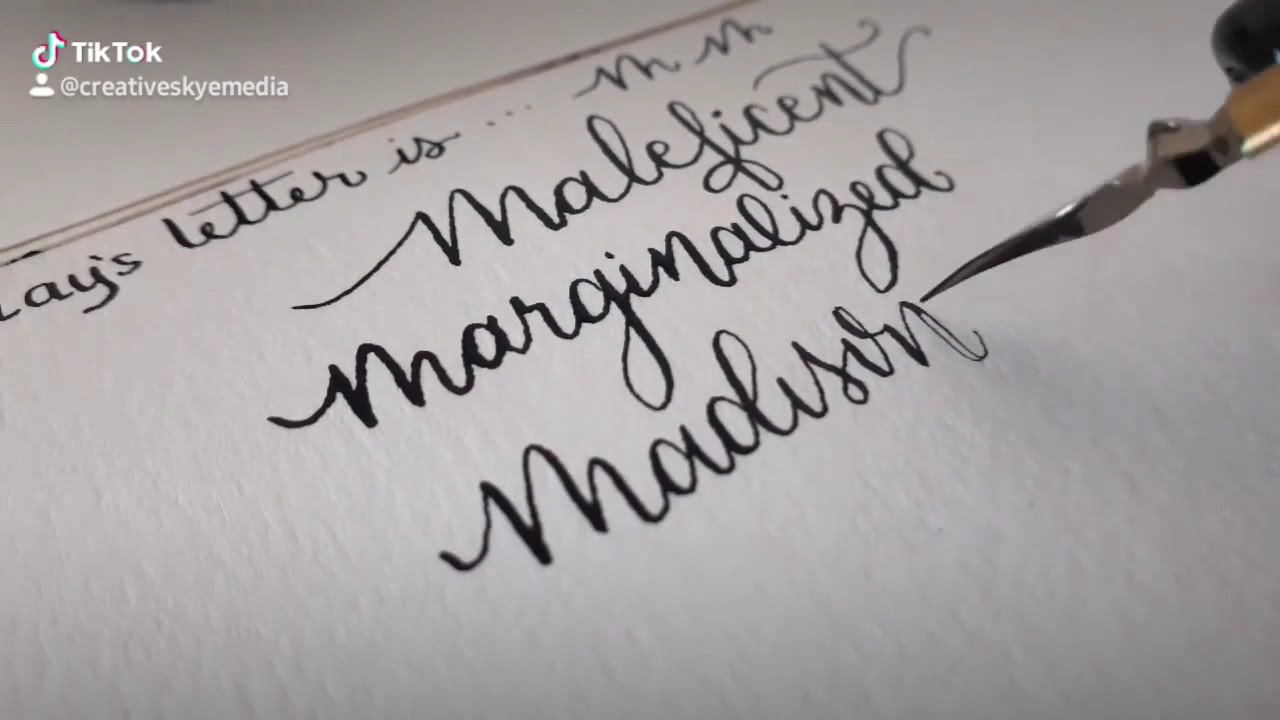 TikTok
@creativeskyemedia
letter is ... m m
Maleficent
marginalized
Madison